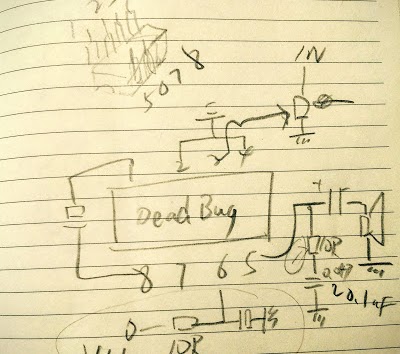 5 0 7 8
IN
1
2 3 4
Dead Bug
8 7 6 5
+
10R
0.1uF
10R